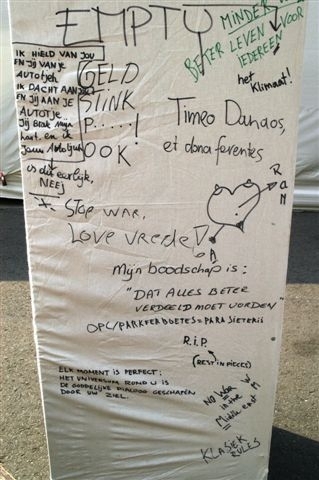 EMPTY
MINDER
BETER LEVEN VOOR
IEDEREEN
het Klimaat!
IK HIELD VAN JOU
EN JIJ VAN JE
AUTOTJEH
IK DACHT AAN JE
EN JIJ AAN JE
AUTOTJE..
JIJ BRAK MIJN
hart, en ik
jouw Autotjuh
IS DIT eerlijk,
NEEJ
GELD
STINK
P.....!
OOK!
Timeo Danaos,
et dona ferentes
* STOP WAR,
Love vrede!
R
A
N
A
Mijn boodschap is:
"DAT ALLES BETER
VERDEELD MOET WORDEN"
R.I.P
(REST IN PIECES)
ELK MOMENT IS PERFECT:
HET UNIVERSUM ROND U IS
DE GODDELIJKE DIALOOG GESCHAPEN
DOOR UW ZIEL.
NO WAR
in the
Middle east
KLASIEK
RULES